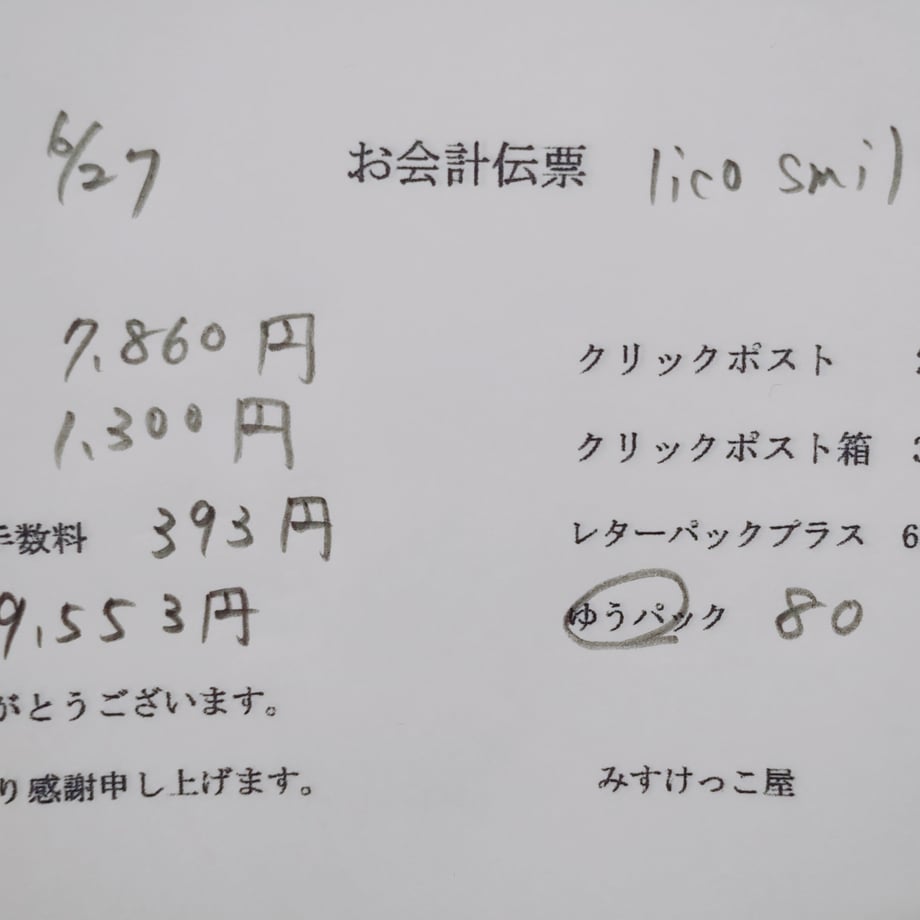 6/27 お会計伝票 lico smil
7,860円
クリックポスト
1,300円
クリックポスト箱 3
手数料 393円
レターパックプラス 6
9,553円
ゆうパック 80
がとうございます。
り感謝申し上げます。
みすけっこ屋